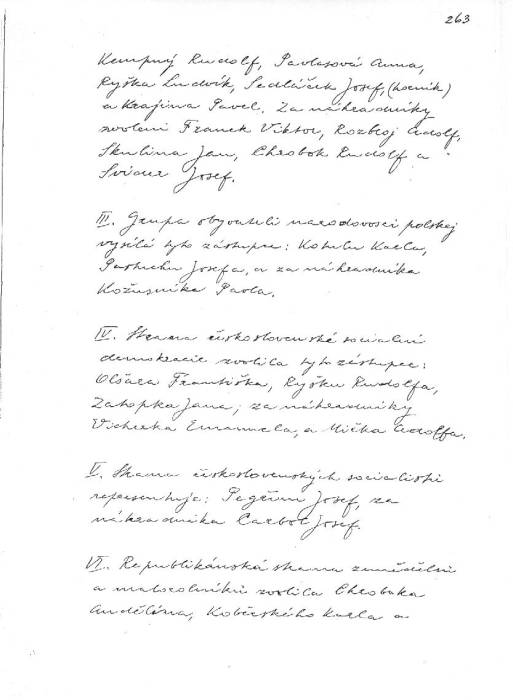 263
Kempný Rudolf, Pavlasová Anna,
Ryška Ludvík, Sedláček Josef, (horník)
a Krajina Pavel. Za náhradníky
zvoleni Franek Viktor, Rozbroj Adolf,
Skulina Jan, Chrobok Rudolf a
Svider Josef.
III. Grupa obyvatelů národnosti polskej
vysílá tyto zástupce: Kotulu Karla,
Pastuchu Josefa, a za náhradníka
Kožusníka Pavla.
IV. Strana československé sociální
demokracie zvolila tyto zástupce:
Olšara Františka, Ryšku Rudolfa,
Zahopka Jana, za náhradníky
Vicherka Emanuela, a Mička Adolfa.
V. Strana československých socialistů
representuje: Josef, za
náhradníka Carbol Josef.
VI. Republikánská strana zemědělců
a malorolníků zvolila Chroboka
Anděléna, Koběrského Karla a